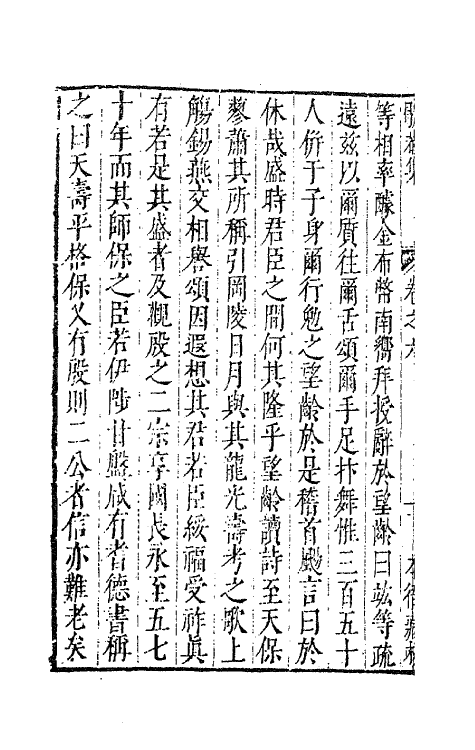 等相率醵金布幣南嚮拜授辭於望齡曰竑等疏
遠兹以爾贗往爾舌頌爾手足抃舞惟三百五十
人倂于子身爾行勉之望齡於是稽首颺言曰於
休哉盛時君臣之間何其隆乎望齡讀詩至天保
蓼蕭其所稱引岡陵日月與其龍光壽考之歌上
觴錫燕交相譽頌因遐想其君若臣綏福受祚眞
有若是其盛者及觀殷之二宗享國長永至五七
十年而其師保之臣若伊陟甘盤咸有耆德書稱
之曰天壽平格保乂有殷則二公者信亦難老矣